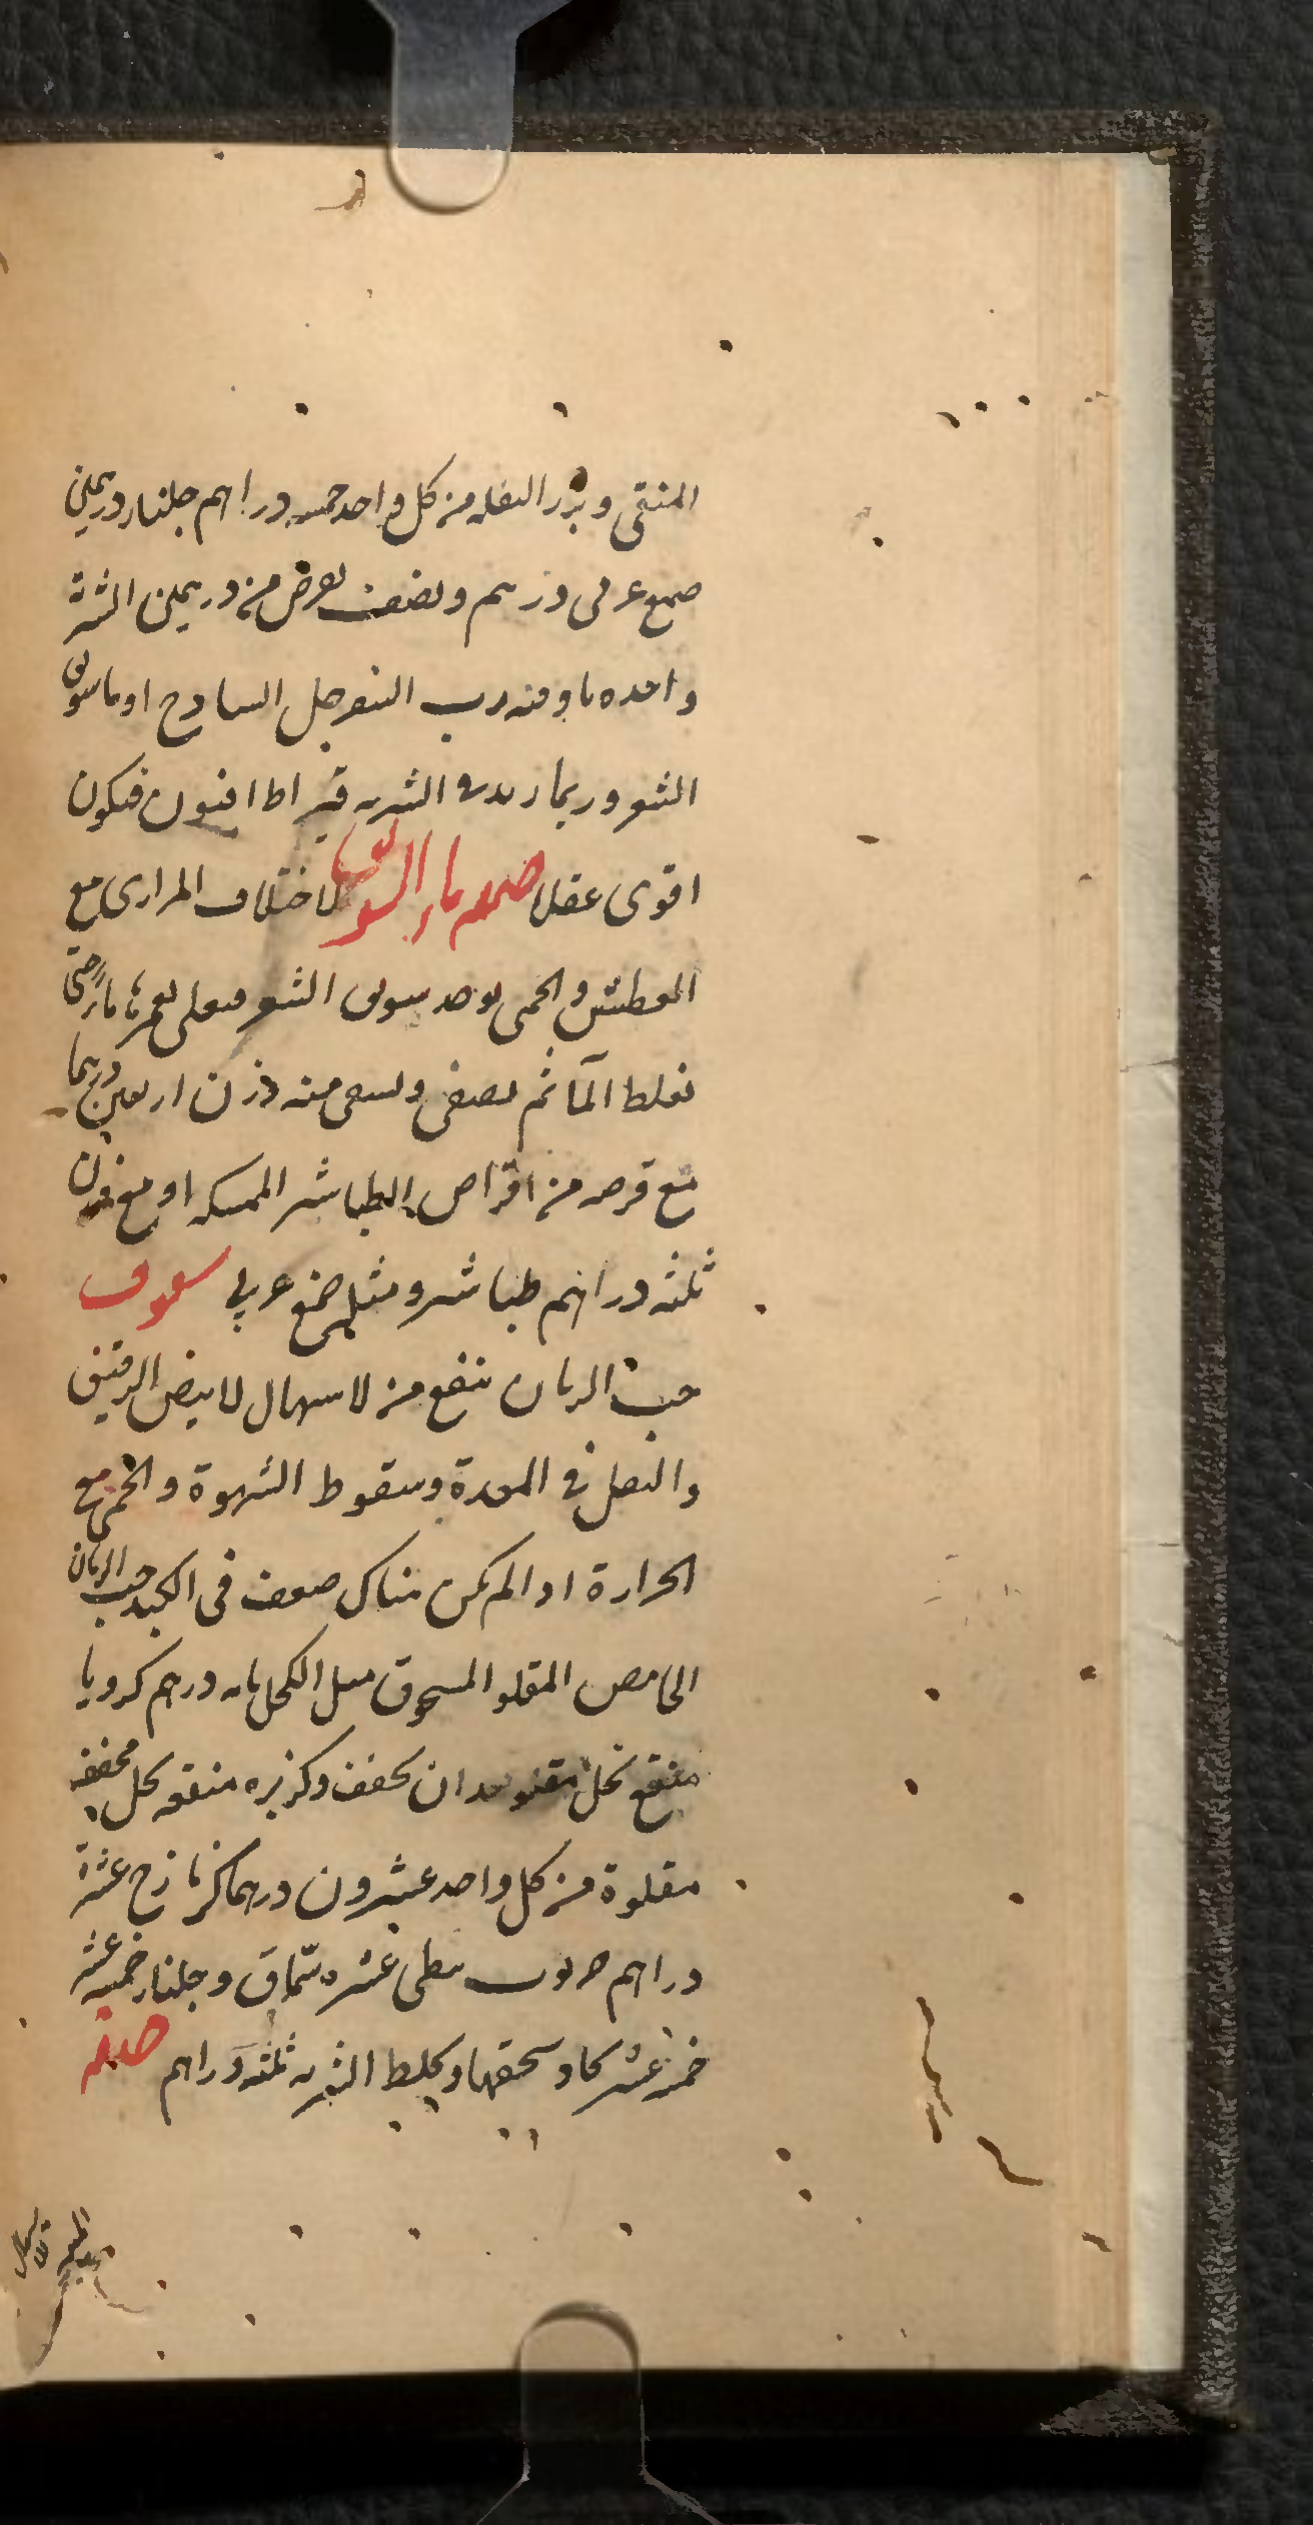 المنقى وبزر البقله من كل واحد خمسه دراهم جلنار درهمين
صمغ عربى درهم ونصف يقرض من درهمين الشربة
واحده باوقيه رب السفرجل الساذج او ماء سويق
الشعير وربما زيد فى الشربه قيراط افيون فيكون
اقوى عقلا صفه ماء السويق لاختلاف المرارى مع
العطش والحمى يوخد سويق الشعير فيغلى بغمره ماء حتى
يغلظ المآ ثم يصفى ويسقى منه وزن اربعين درهما
مع قرصه من اقراص الطباشير الممسكه او مع وزن
ثلثه دراهم طباشير ومثله صمغ عربى سفوف
حب الرمان ينفع من لاسهال لابيض الرقيق
والثقل فى المعدة وسقوط الشهوة والحمى مع
الحرارة اذا لم يكن هناك ضعف فى الكبد حب الرمان
الحامض المقلو المسحوق مثل الكحل مايه درهم كرويا
منقع بخل مقلو بعد ان يجفف وكزبره منقعه بخل مجففه
مقلوة من كل واحد عشرون درهما كزمازج عشرة
دراهم خرنوب نبطى عشره سماق وجلنار خمسه عشر
خمسه عشر يجاد سحقها ويخلط الشربه ثلثه دراهم صفه